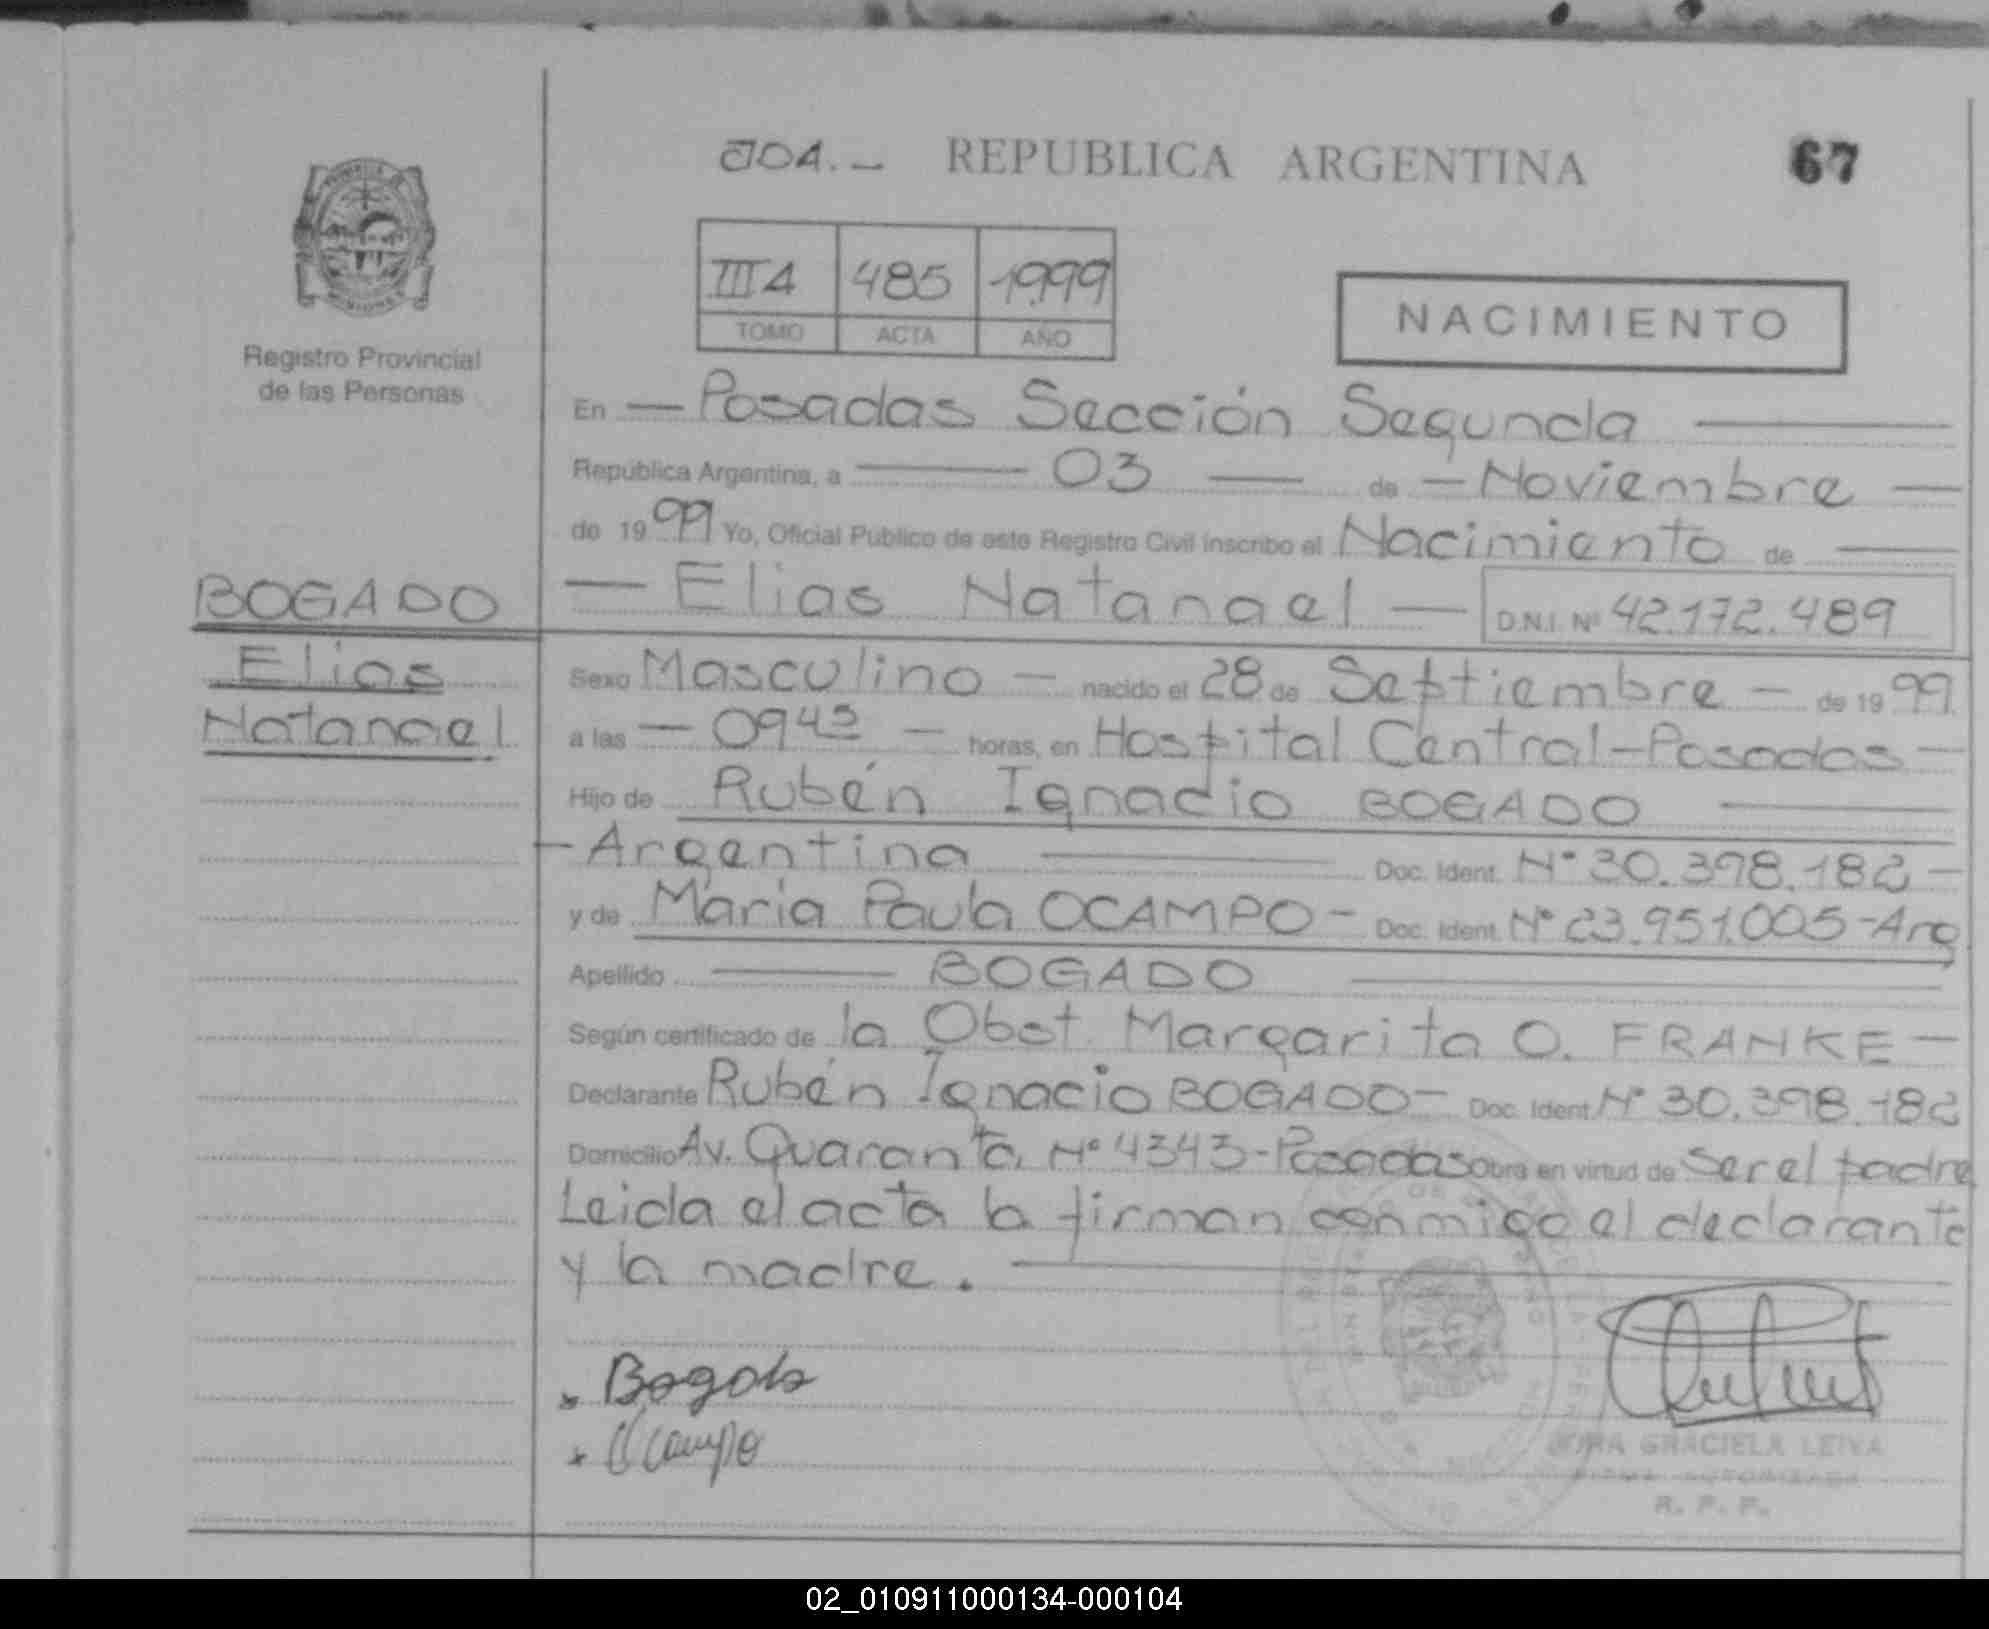 JOA.- REPUBLICA ARGENTINA 67
III A 485 1999
TOMO ACTA AÑO
NACIMIENTO
Registro Provincial
de las Personas
En — Posadas Sección Segunda —
República Argentina, a — 03 — de — Noviembre —
de 1999 Yo, Oficial Público de este Registro Civil inscribo el Nacimiento de —
BOGADO
Elias
Natanael
— Elias Natanael — D.N.I. Nº 42.172.489
Sexo Masculino — nacido el 28 de Septiembre — de 1999
a las — 09 45 — horas, en Hospital Central - Posadas —
Hijo de Rubén Ignacio BOGADO —
- Argentina — Doc. Ident. Nº 30.398.182 —
y de María Paula OCAMPO - Doc. Ident. Nº 23.951.005 - Arg
Apellido — BOGADO —
Según certificado de la Obst. Margarita O. FRANKE —
Declarante Rubén Ignacio BOGADO - Doc. Ident. Nº 30.398.182
Domicilio Av. Quaranta Nº 4343 - Posadas Obra en virtud de Ser el padre
Leida el acta la firman conmigo el declarante
y la madre. —
x Bogado
x Ocampo
GRACIELA LEIVA
FIRMA AUTORIZADA
R. P. P.
02_010911000134-000104